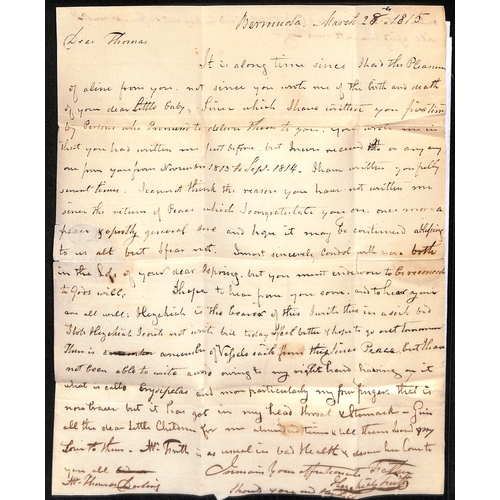 Bermuda, March 28th 1815
Dear Thomas
It is a long time since I had the Pleasure
of a line from you. not since you wrote me of the birth and death
of your dear little baby, Since which I have written you five times
by Persons who Promised to deliver them to you. you wrote me in
that you had written me just before. but I never received or any
one from you from November 1813 to Sept. 1814. I have written you
several times. I cannot think the reason you have not written me
since the return of Peace which I congratulate you on. once more a
peace & a general one and hope it may be continued a blessing
to us all but I fear not. I most sincerely condol with you both
in the loss of your dear but you must endeavour to be reconcild
to Gods will, I hope to hear from you soon. and to hear you
are all well; Hezekiah is the bearer of this I write this in a sick bed
I told Hezekiah I could not write but today I feel better & hope to go out tomorrow
There is a number of Vessels saild from this Since Peace. but I have
not been able to write a word owing to my right hand having on it
what is called erysipelas and more particularly my fore finger. that is
now braver but it has got in my head throat & Stomack — Give
all the dear little Children for me and tell them Send my
Love to them — Mr. Frith is as usual in bad Health & desires his Love to
you all I remain Your affectionate
Mr. Thomas Darling
Should you